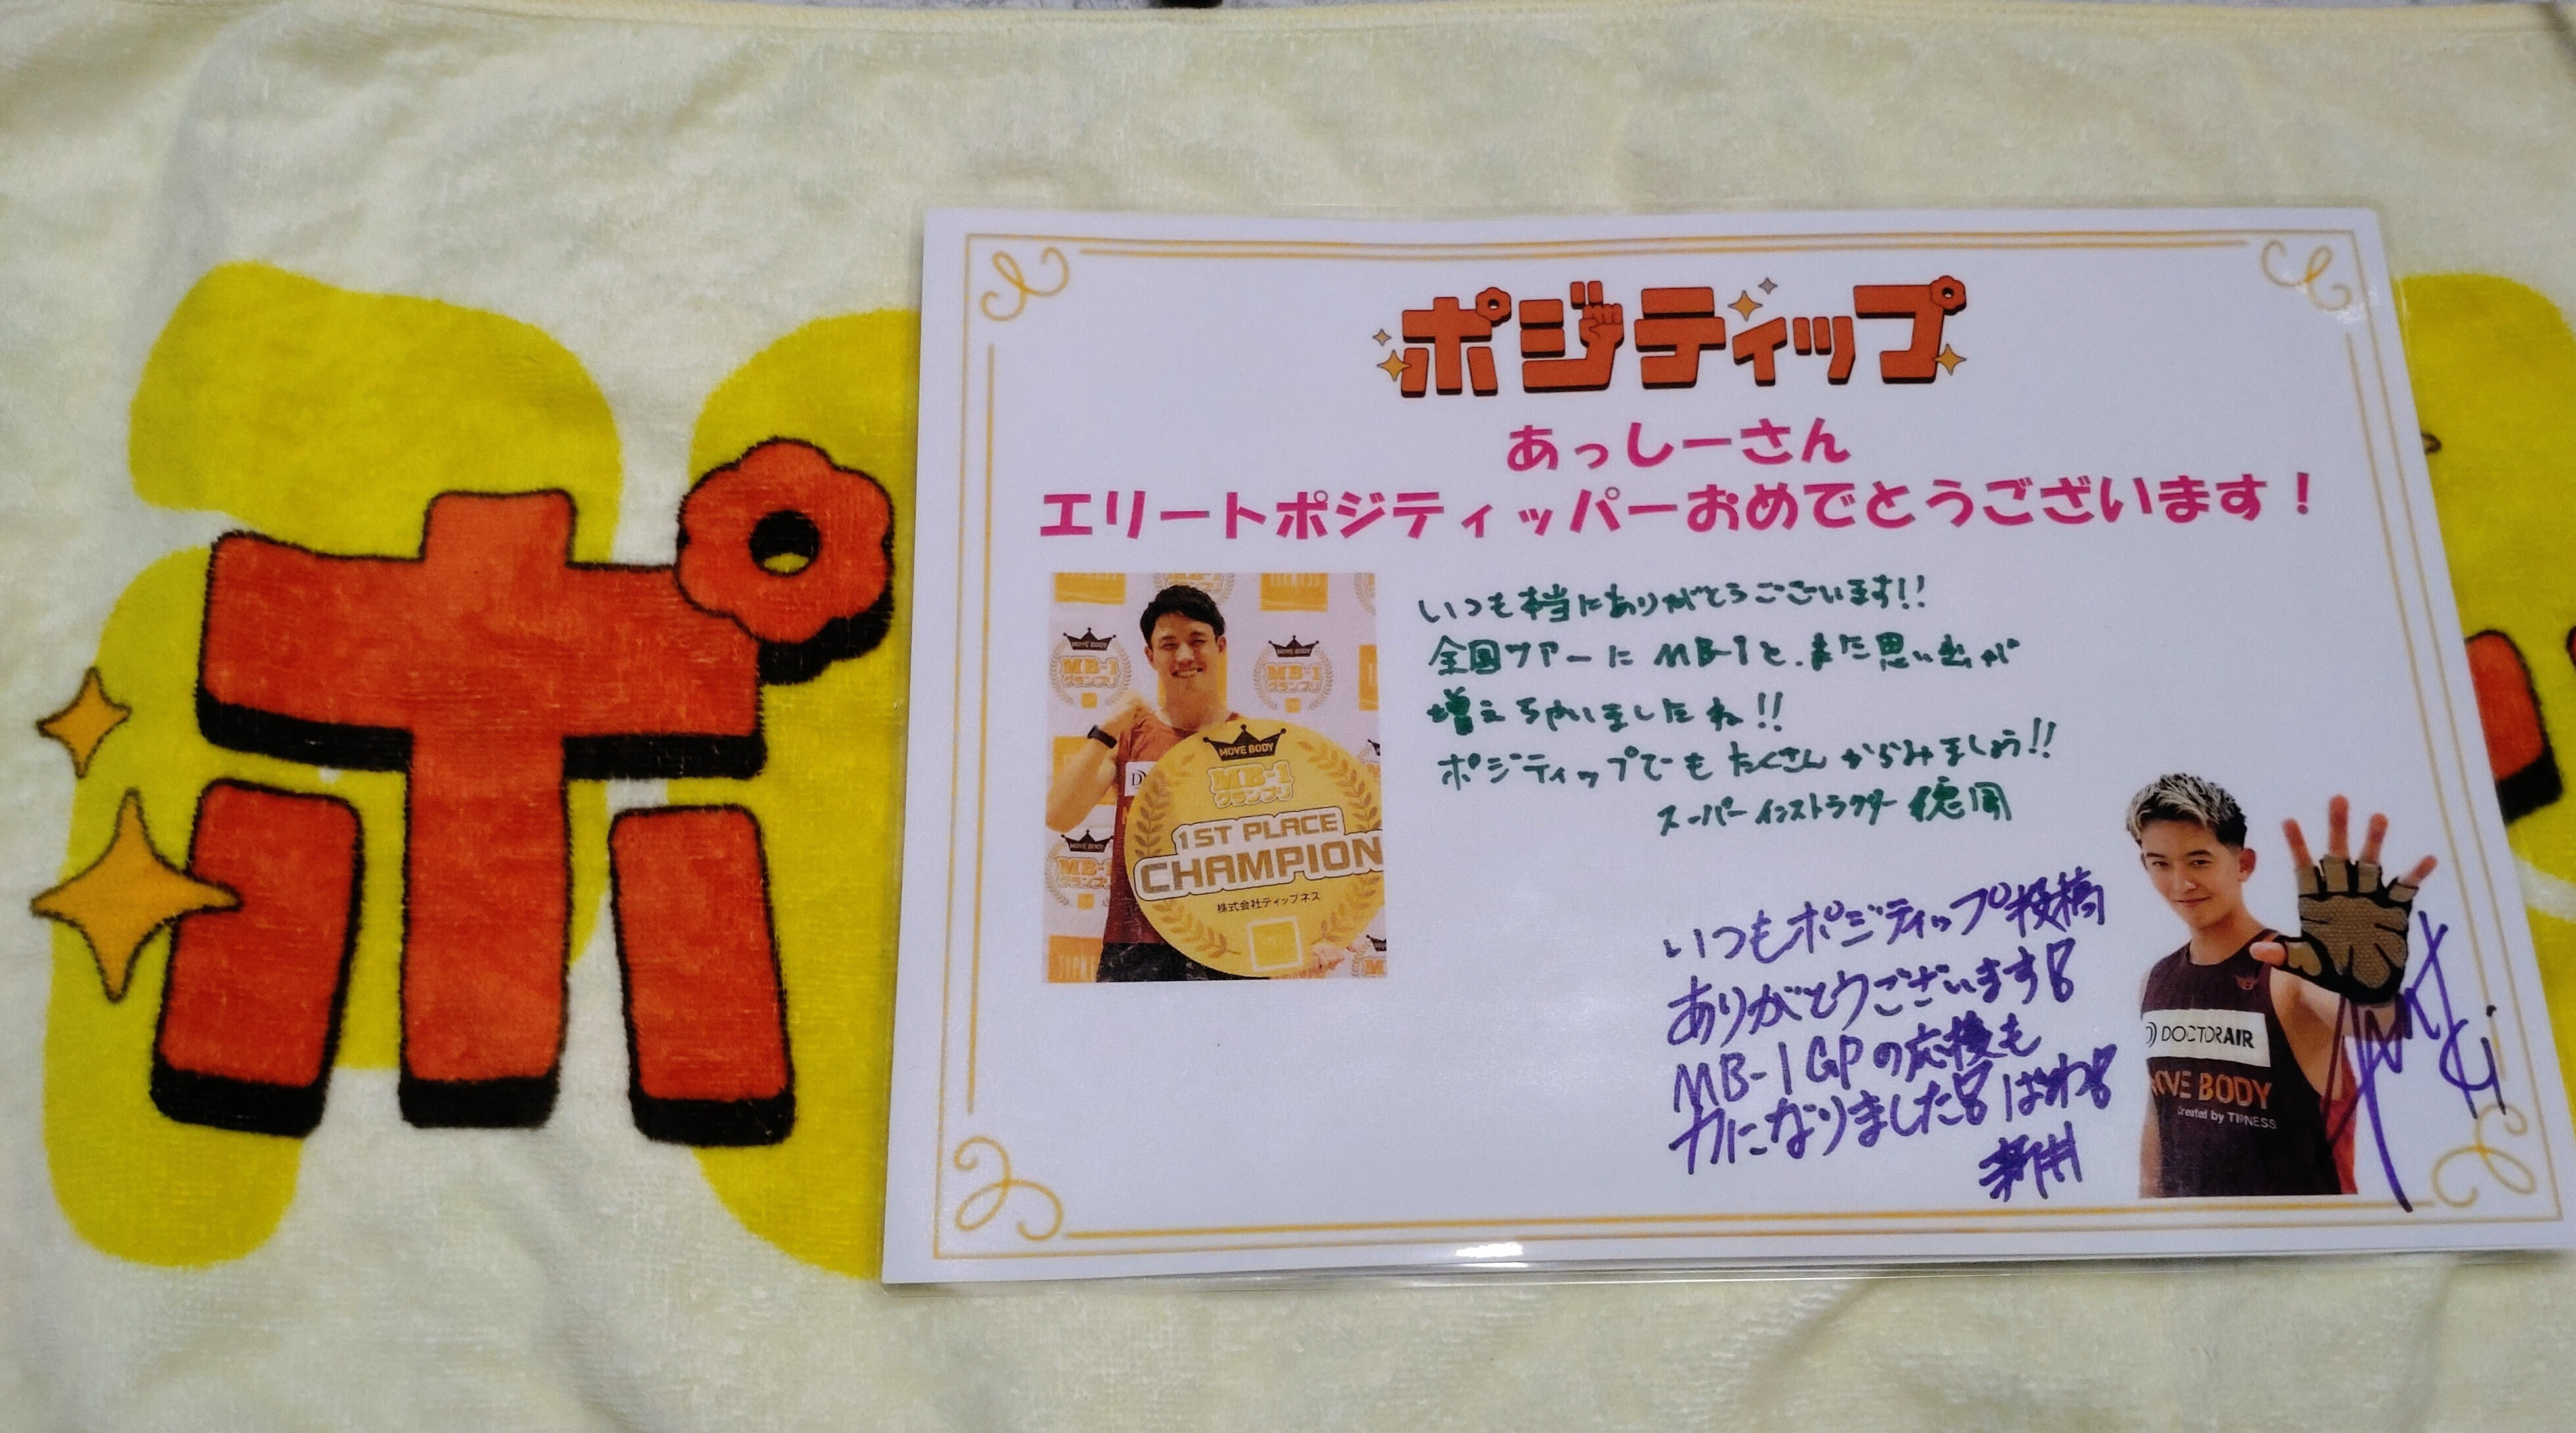 ポ
ポジティップ
あっしーさん
エリートポジティッパーおめでとうございます！
いつも本当にありがとうございます!!
全国ツアーにMB-1と、また思い出が
増えちゃいましたね!!
ポジティップでもたくさんからみましょう!!
スーパーインストラクター 徳岡
MOVE BODY
MB-1
グランプリ
1ST PLACE
CHAMPION
株式会社ティップネス
いつもポジティップ投稿
ありがとうございます!
MB-1 GPの応援も
力になりました! ばわ!
新井
DOCTORAIR
MOVE BODY
Created by TIPNESS